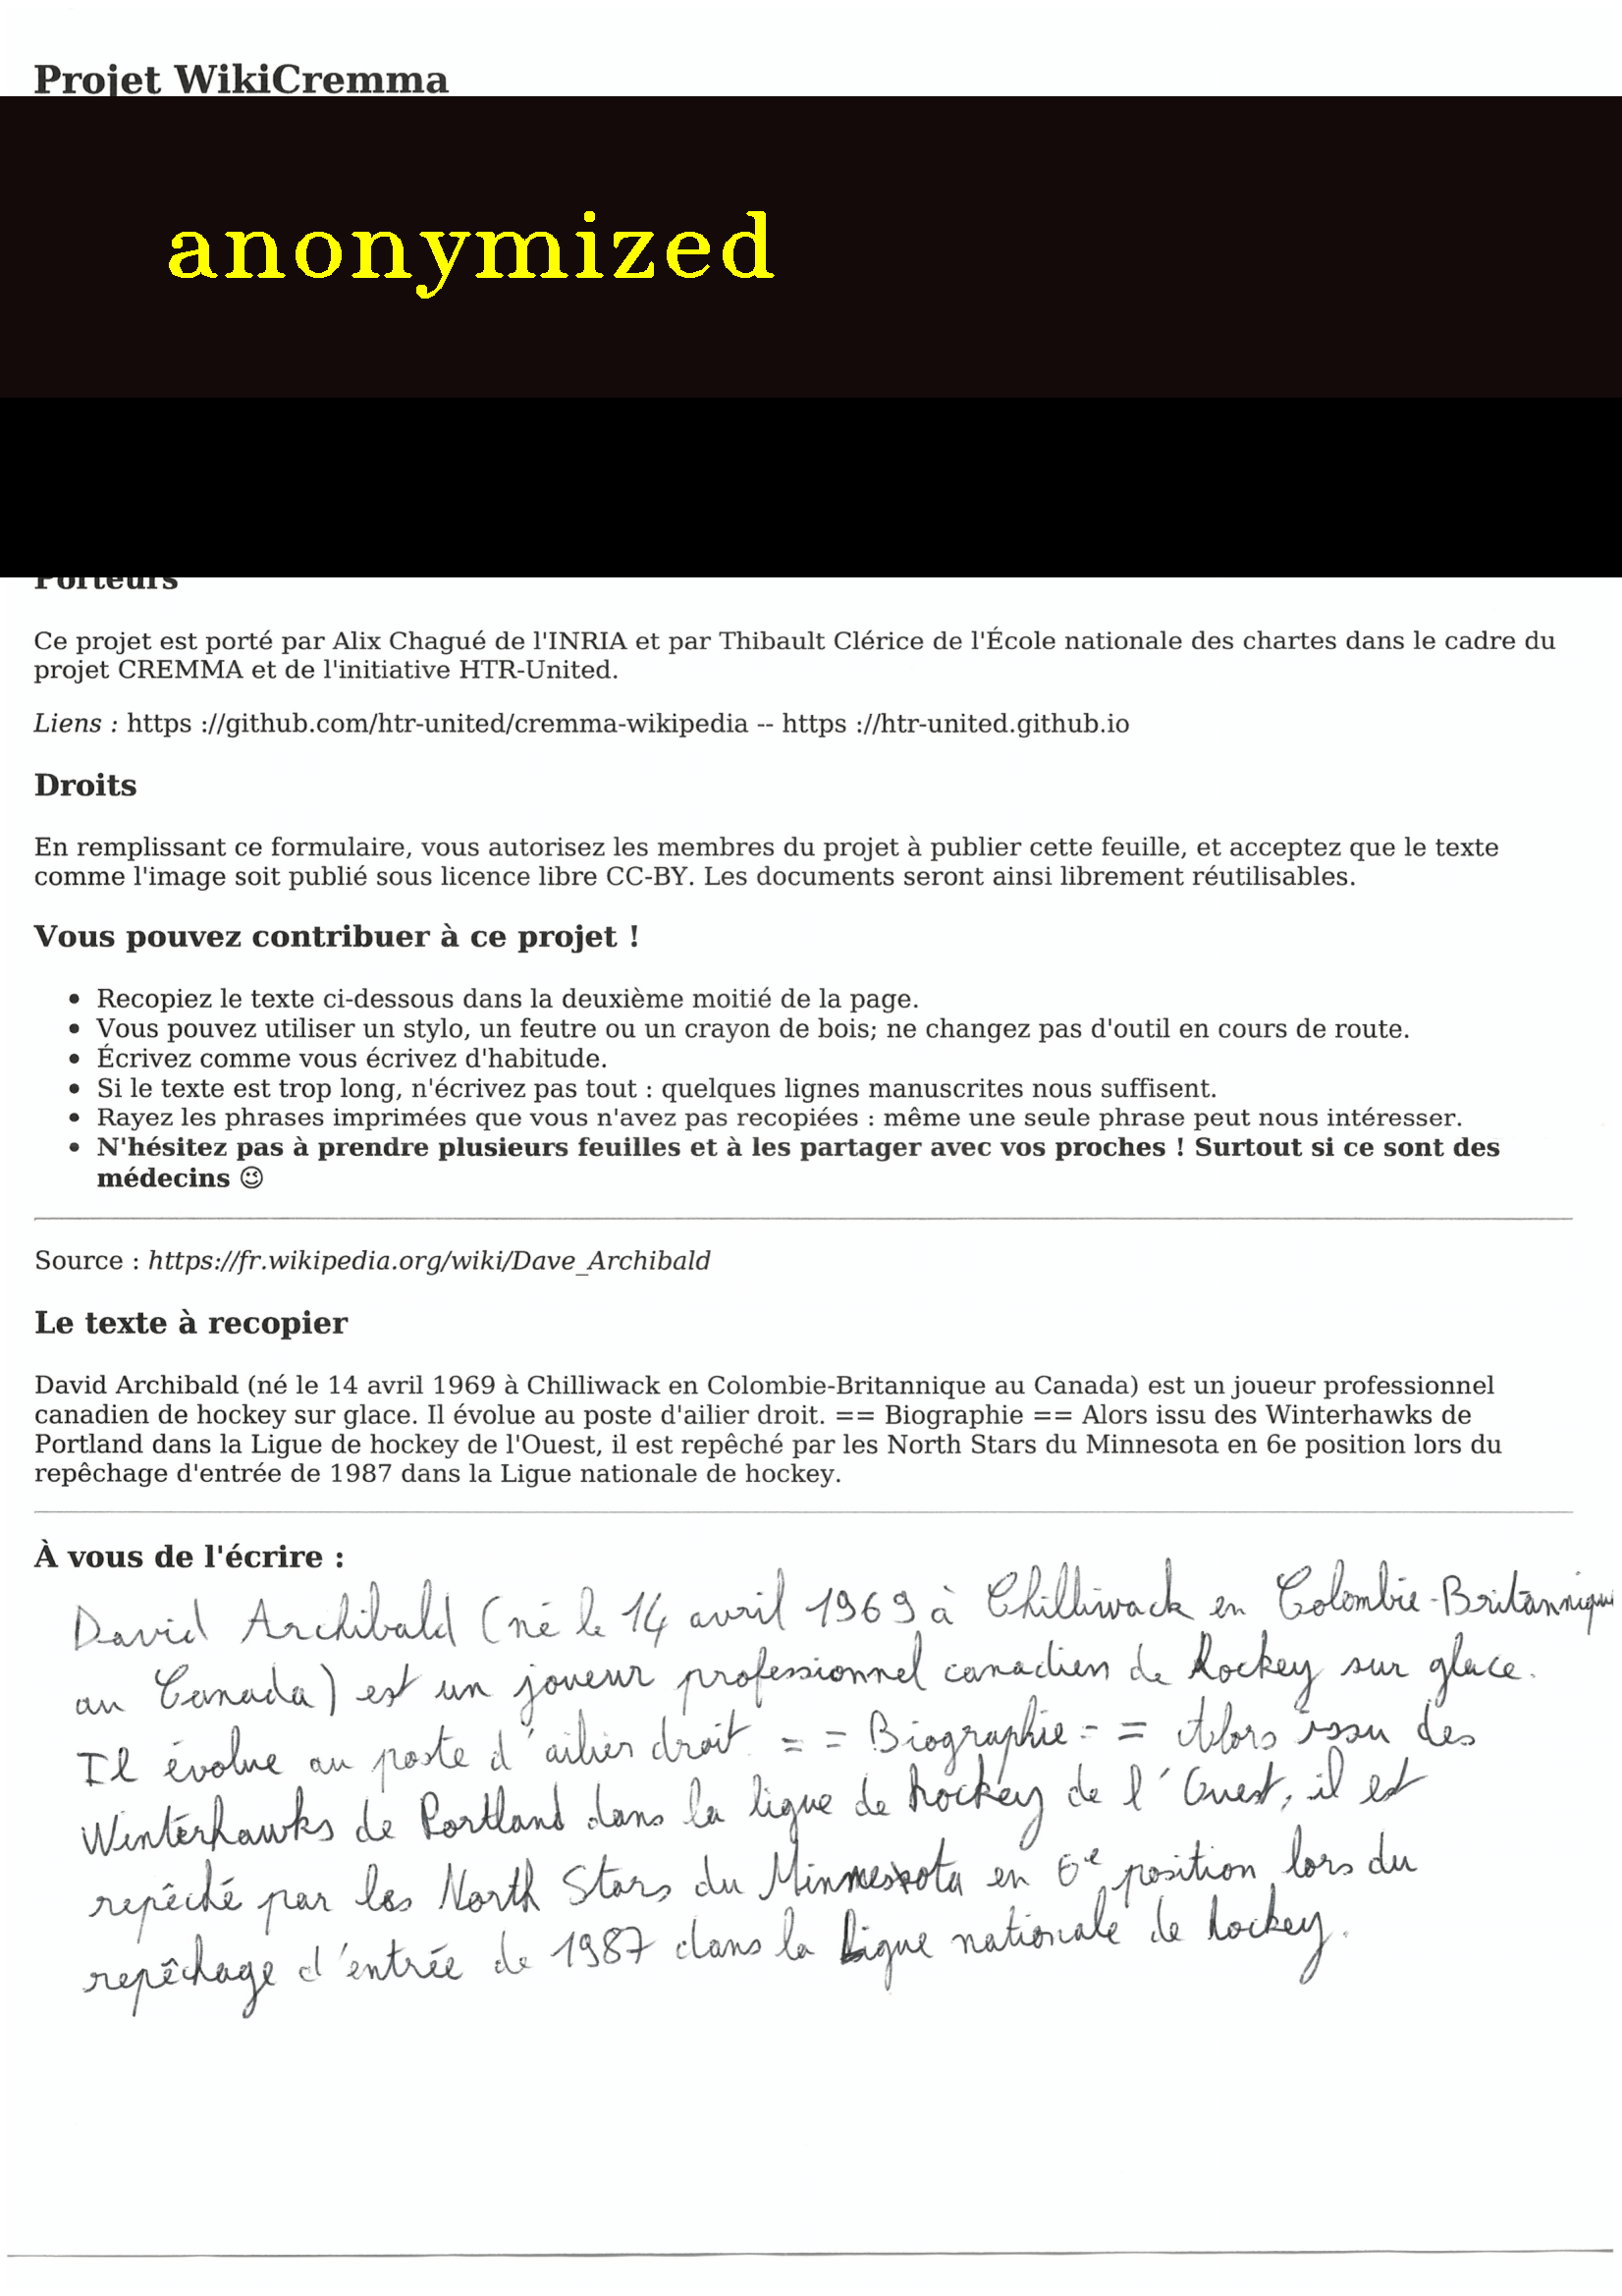 Projet WikiCremma
anonymized
Porteurs
Ce projet est porté par Alix Chagué de l'INRIA et par Thibault Clérice de l'École nationale des chartes dans le cadre du
projet CREMMA et de l'initiative HTR-United.
Liens : https ://github.com/htr-united/cremma-wikipedia -- https ://htr-united.github.io
Droits
En remplissant ce formulaire, vous autorisez les membres du projet à publier cette feuille, et acceptez que le texte
comme l'image soit publié sous licence libre CC-BY. Les documents seront ainsi librement réutilisables.
Vous pouvez contribuer à ce projet !
• Recopiez le texte ci-dessous dans la deuxième moitié de la page.
• Vous pouvez utiliser un stylo, un feutre ou un crayon de bois; ne changez pas d'outil en cours de route.
• Écrivez comme vous écrivez d'habitude.
• Si le texte est trop long, n'écrivez pas tout : quelques lignes manuscrites nous suffisent.
• Rayez les phrases imprimées que vous n'avez pas recopiées : même une seule phrase peut nous intéresser.
• N'hésitez pas à prendre plusieurs feuilles et à les partager avec vos proches ! Surtout si ce sont des
médecins 😉
Source : https://fr.wikipedia.org/wiki/Dave_Archibald
Le texte à recopier
David Archibald (né le 14 avril 1969 à Chilliwack en Colombie-Britannique au Canada) est un joueur professionnel
canadien de hockey sur glace. Il évolue au poste d'ailier droit. == Biographie == Alors issu des Winterhawks de
Portland dans la Ligue de hockey de l'Ouest, il est repêché par les North Stars du Minnesota en 6e position lors du
repêchage d'entrée de 1987 dans la Ligue nationale de hockey.
À vous de l'écrire :
David Archibald (né le 14 avril 1969 à Chilliwack en Colombie-Britannique
au Canada) est un joueur professionnel canadien de hockey sur glace.
Il évolue au poste d'ailier droit. = = Biographie = = Alors issu des
Winterhawks de Portland dans la ligue de hockey de l'Ouest, il est
repêché par les North Stars du Minnesota en 6e position lors du
repêchage d'entrée de 1987 dans la Ligue nationale de hockey.